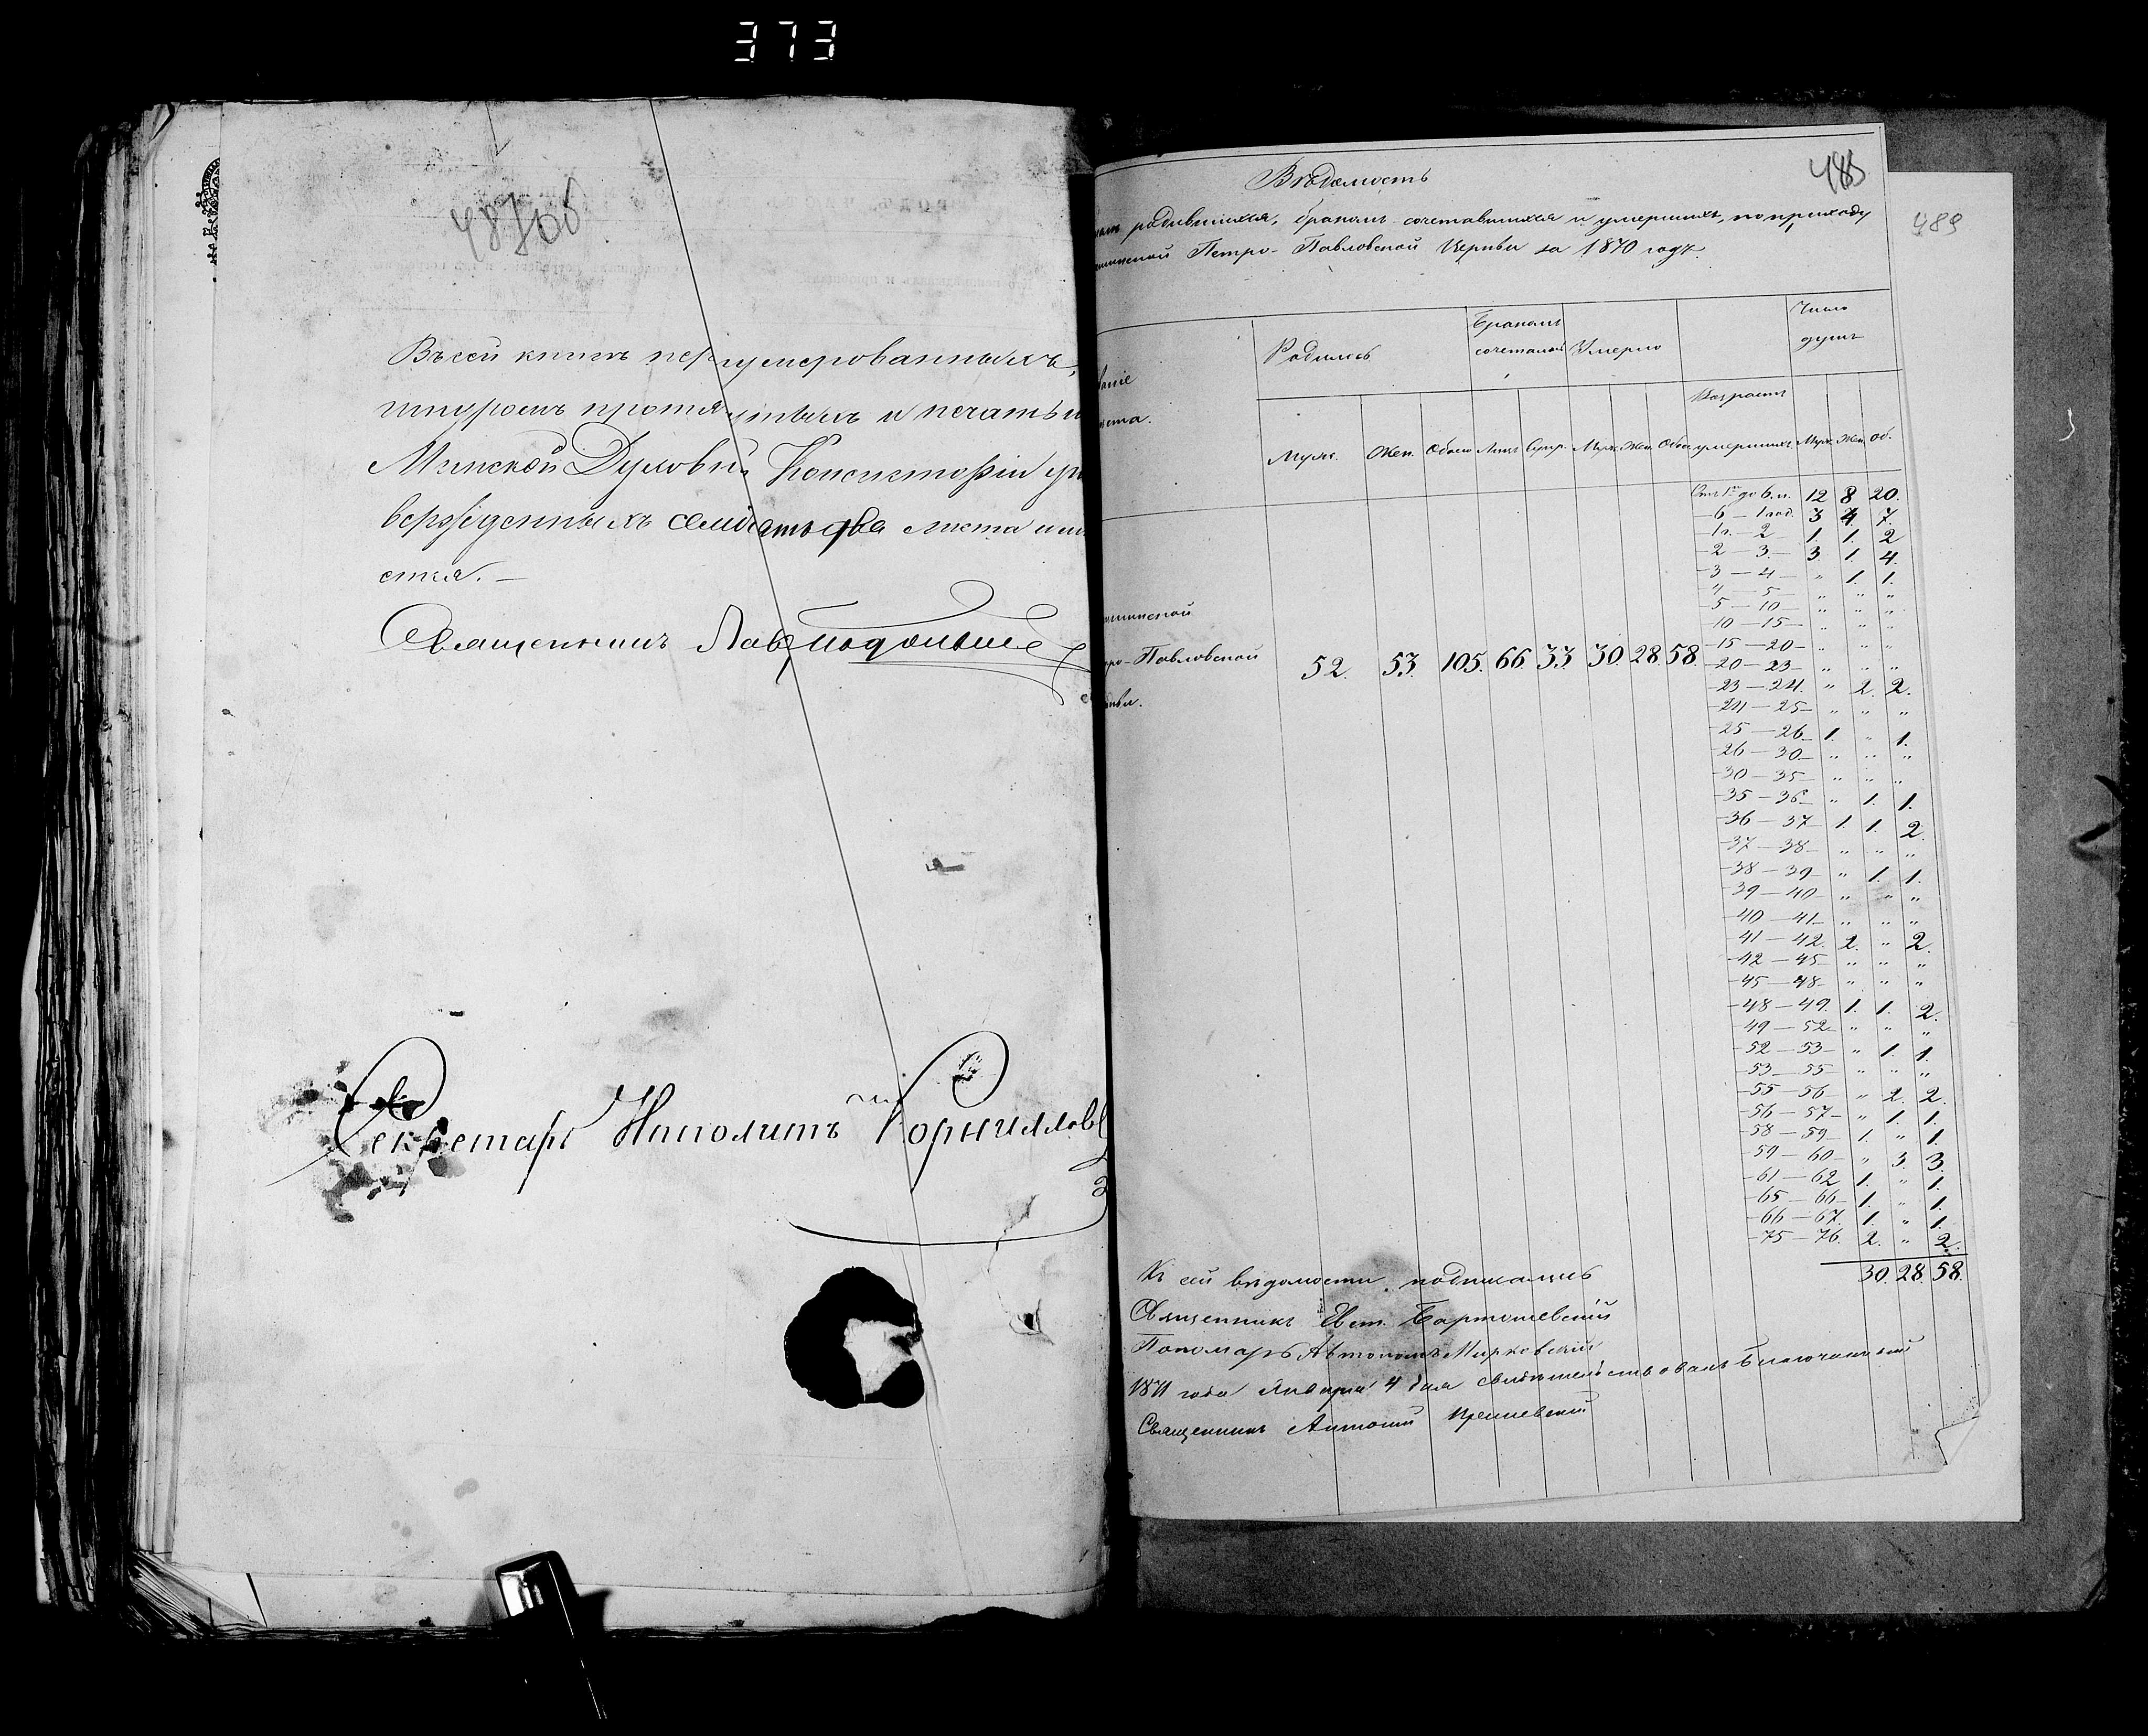 373
Въ сей книгѣ перенумерованныхъ,
шнуромъ протянутыхъ и печатью
Минской Духовной Консисторіи ут
вержденныхъ семьдесятъ два листа
Священникъ
Секретарь Ипполитъ Корниллов
485
489
Вѣдомость
родившихся, бракомъ сочетавшихся и умершихъ, по приходу
Петро-Павловской Церкви за 1870 годъ.
Родилось
Бракомъ
сочеталось
Умерло
Число
душъ
Возрастъ
умершихъ
Муж. Жен. Обоего Лицъ Супр. Муж. Жен. Обоего Муж. Жен. Об.
Петро-Павловской
52. 53. 105. 66. 33. 30. 28. 58.
Отъ 1го до 6. м. 12 8 20.
6 — 1 год. 3 4. 7.
1 г. — 2 1. 1. 2
2 — 3 — 3. 1. 4.
3 — 4 — " 1. 1.
4 — 5 — " " "
5 — 10 — " " "
10 — 15 — " " "
15 — 20 — " " "
20 — 23 — " " "
23 — 24. " 2. 2.
24 — 25 — " " "
25 — 26 1. " 1.
26 — 30 — " " "
30 — 35 — " " "
35 — 36 — " 1. 1.
36 — 37 1. 1. 2.
37 — 38 — " " "
38 — 39 — " 1. 1.
39 — 40 " " "
40 — 41 — " " "
41 — 42. 2. " 2.
42 — 45 " " "
45 — 48 — " " "
48 — 49. 1. 1. 2.
49 — 52 — " " "
52 — 53 — " 1. 1.
53 — 55 " " "
55 — 56 — " 2. 2.
56 — 57 — " 1. 1.
58 — 59 1. " 1.
59 — 60 — " 3. 3.
61 — 62 1. " 1.
65 — 66 1. " 1.
66 — 67. 1. " 1.
75 — 76. 2. " 2.
30. 28. 58.
Къ сей вѣдомости подписались
Священникъ Евст. Бартошевскій
Пономарь Автономъ Мирковскій
1871 года Января 4 дня свидѣтельствовалъ Благочинный
Священникъ Антоній